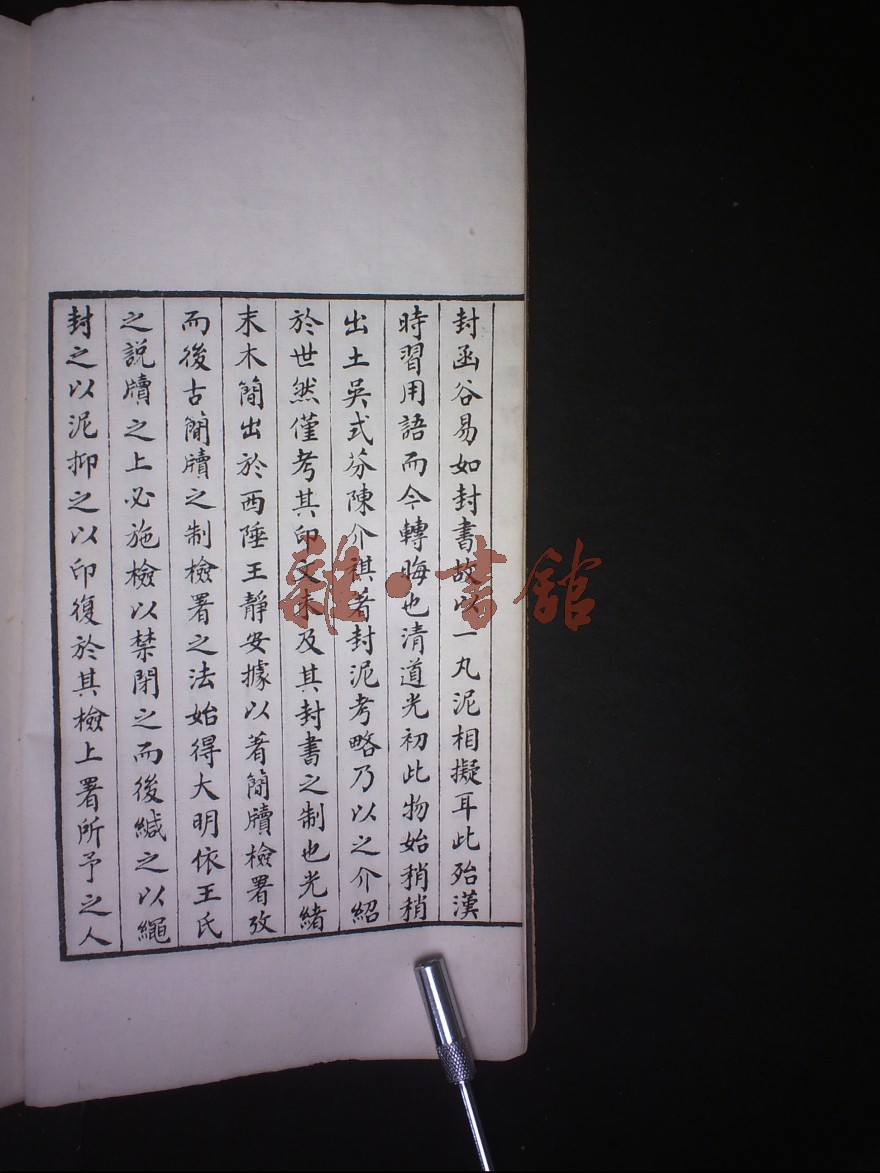 封函谷易如封書故以一丸泥相擬耳此殆漢
時習用語而今轉晦也清道光初此物始稍稍
出土吳式芬陳介祺著封泥考略乃以之介紹
於世然僅考其印文未及其封書之制也光緒
末木簡出於西陲王靜安據以著簡牘檢署攷
而後古簡牘之制檢署之法始得大明依王氏
之說牘之上必施檢以禁閉之而後緘之以繩
封之以泥抑之以印復於其檢上署所予之人
雜·書館